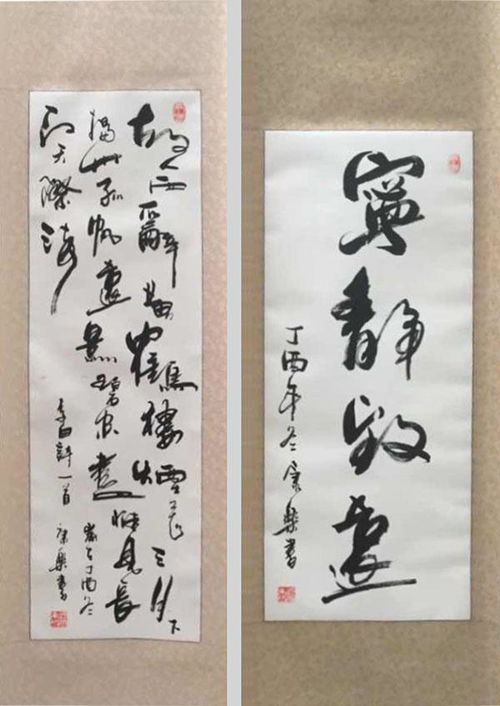 故人西辭黃鶴樓煙花三月下
揚州孤帆遠景碧空盡惟見長
江天際流
李白詩一首
丁酉冬
康樂書
寧靜致遠
丁酉年冬康樂書